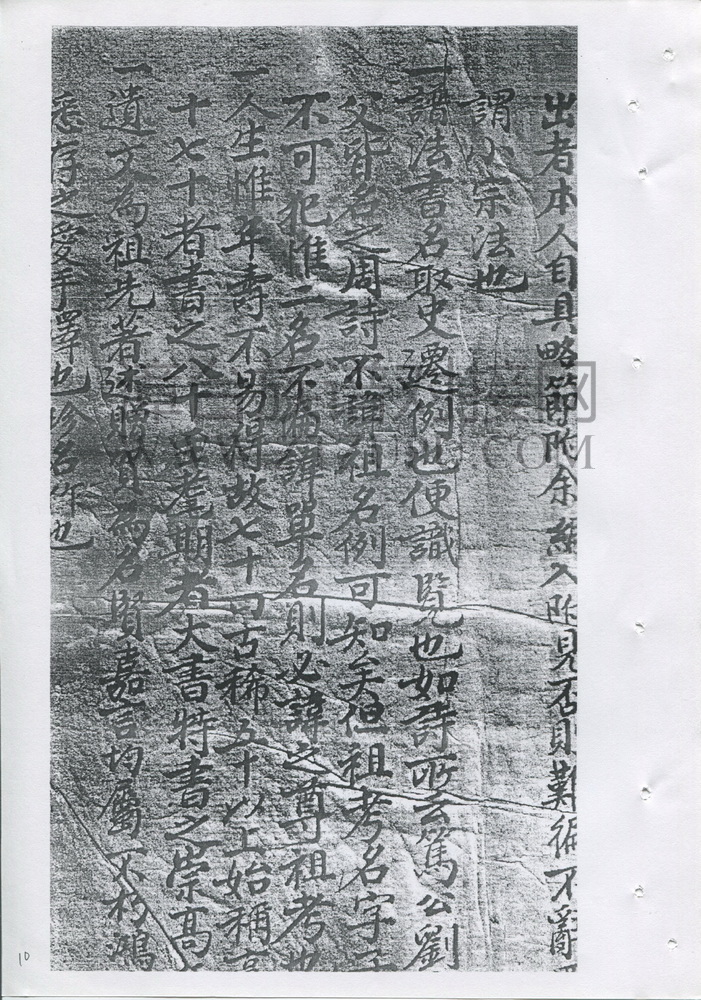 出者本人自具略節附余編入附見否則難徧不爵
謂小宗法也
一譜法書名取史遷例也便識覽也如詩所云篤公劉
父皆名之周詩不諱祖名例可知矣但祖考名字子
不可犯惟二名不偏諱單名則必諱之尊祖考也
一人生惟年壽不易得故七十曰古稀五十以上始稱
十七十者書之八十耄期者大書特書之崇高
一遺文為祖先著述為名賢嘉言均屬不朽鴻
悉存之愛手澤也珍名作也
10